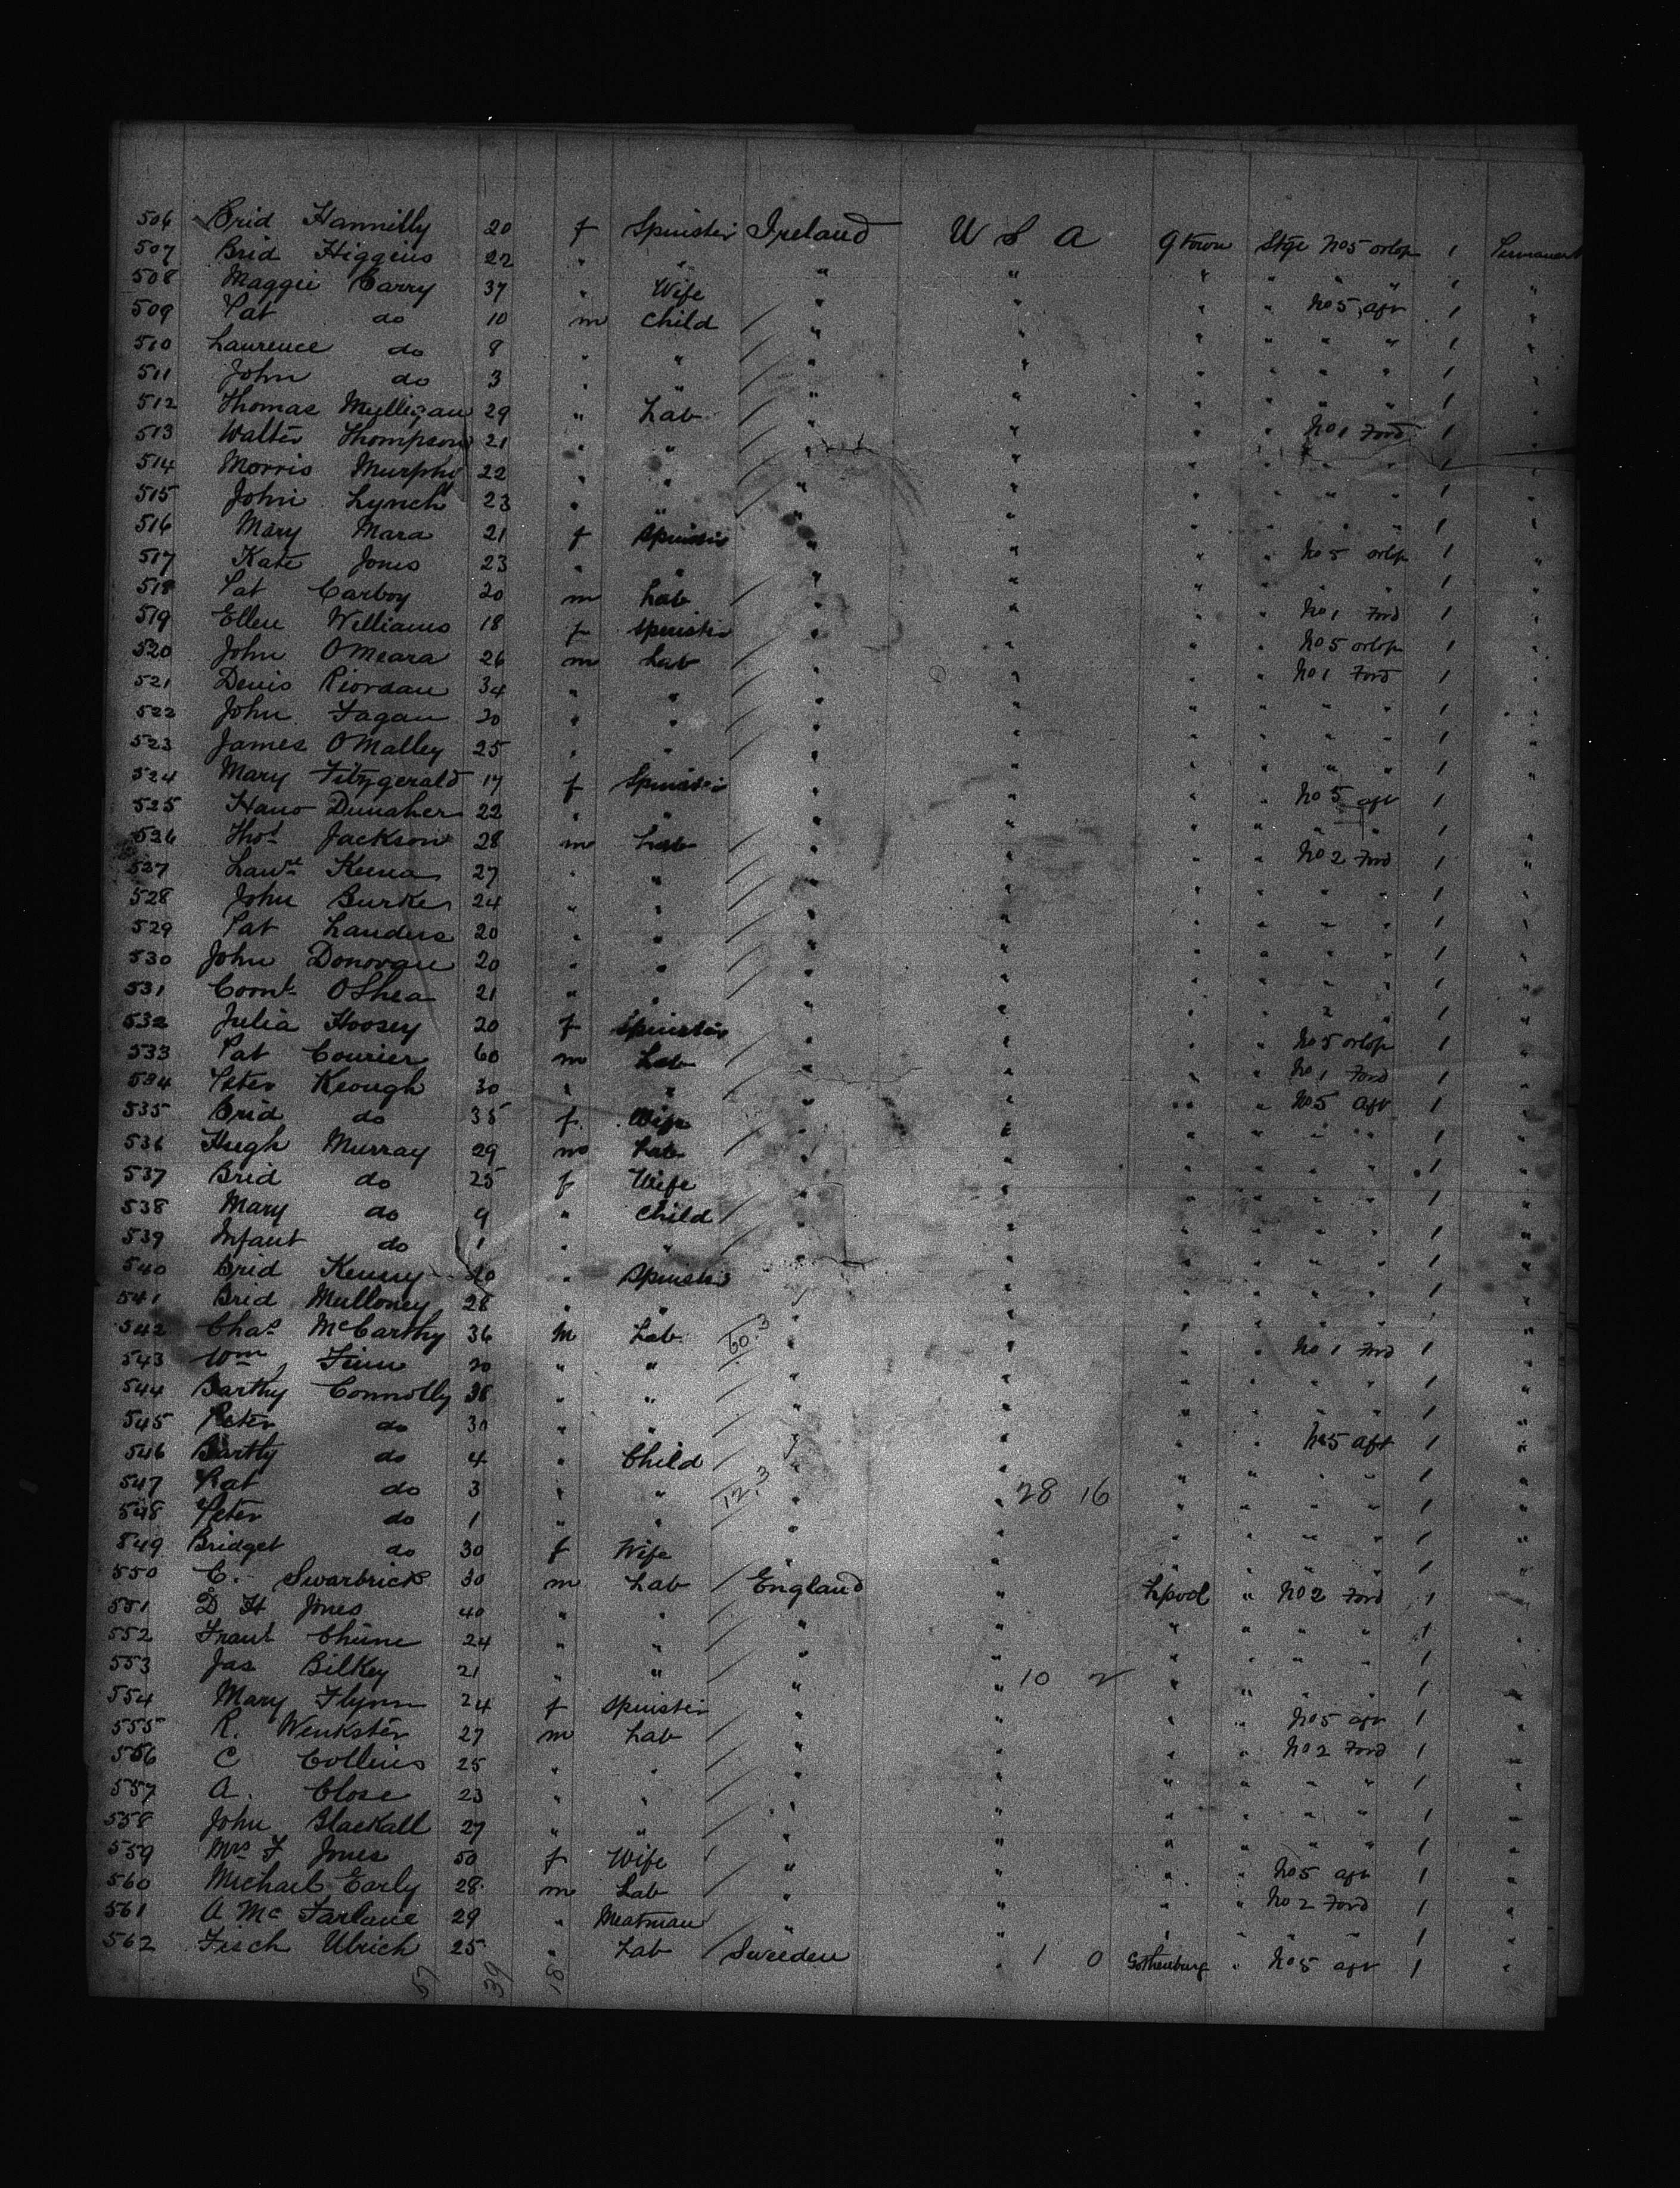 506 Brid Hannilly 20 f Spinster Ireland U S A Qtown Stge No 5 orlop 1 Permanent
507 Brid Higgins 22 " " " " " " " " 1 "
508 Maggie Carry 37 " Wife " " " " No 5 aft 1 "
509 Pat do 10 m Child " " " " " " 1 "
510 Laurence do 8 " " " " " " " " 1 "
511 John do 3 " " " " " " " " 1 "
512 Thomas Mulligan 29 " Lab " " " " No 1 Ford 1 "
513 Walter Thompson 21 " " " " " " " " 1 "
514 Morris Murphy 22 " " " " " " " " 1 "
515 John Lynch 23 " " " " " " " " 1 "
516 Mary Mara 21 f Spinster " " " " No 5 orlop 1 "
517 Kate Jones 23 " " " " " " " " 1 "
518 Pat Carboy 20 m Lab " " " " No 1 Ford 1 "
519 Ellen Williams 18 f Spinster " " " " No 5 orlop 1 "
520 John OMeara 26 m Lab " " " " No 1 Ford 1 "
521 Denis Riordan 34 " " " " " " " " 1 "
522 John Fagan 20 " " " " " " " " 1 "
523 James OMalley 25 " " " " " " " " 1 "
524 Mary Fitzgerald 17 f Spinster " " " " No 5 aft 1 "
525 Hano Dunaher 22 " " " " " " " " 1 "
526 Thos Jackson 28 m Lab " " " " No 2 Ford 1 "
527 Lawre Keena 27 " " " " " " " " 1 "
528 John Burke 24 " " " " " " " " 1 "
529 Pat Landers 20 " " " " " " " " 1 "
530 John Donovan 20 " " " " " " " " 1 "
531 Corns OShea 21 " " " " " " " " 1 "
532 Julia Hoosey 20 f Spinster " " " " No 5 orlop 1 "
533 Pat Courier 60 m Lab " " " " No 1 Ford 1 "
534 Peter Keough 30 " " " " " " No 5 aft 1 "
535 Brid do 35 f Wife " " " " " " 1 "
536 Hugh Murray 29 m Lab " " " " " " 1 "
537 Brid do 25 f Wife " " " " " " 1 "
538 Mary do 9 " Child " " " " " " 1 "
539 Infant do 1 " " " " " " " " 1 "
540 Brid Kenny " Spinster " " " " " " 1 "
541 Brid Mulloney 28 " " " " " " " " 1 "
542 Chas McCarthy 36 m Lab 60.3 " " " " No 1 Ford 1 "
543 Wm Finn 20 " " " " " " " " 1 "
544 Barthy Connolly 38 " " " " " " " " 1 "
545 Peter do 30 " " " " " " No 5 aft 1 "
546 Barthy do 4 " Child " " " " " " 1 "
547 Pat do 3 " " 12.3 " " 28 16 " " " " 1 "
548 Peter do 1 " " " " " " " " 1 "
549 Bridget do 30 f Wife " " " " " " 1 "
550 C. Swarbrick 30 m Lab England " Lpool " No 2 Ford 1 "
551 D H Jones 40 " " " " " " " " 1 "
552 Frant Chune 24 " " " " " " " " 1 "
553 Jas Bilkey 21 " " " " 10 2 " " " " 1 "
554 Mary Flynn 24 f Spinster " " " " No 5 aft 1 "
555 R. Wenkster 27 m Lab " " " " No 2 Ford 1 "
556 C Collins 25 " " " " " " " " 1 "
557 A. Close 23 " " " " " " " " 1 "
558 John Blackall 27 " " " " " " " " 1 "
559 Mrs F Jones 50 f Wife " " " " No 5 aft 1 "
560 Michael Early 28 m Lab " " " " No 2 Ford 1 "
561 A McFarlane 29 " Meatman " " " " " " 1 "
562 Fisch Ulrich 25 " Lab Sweeden " 1 0 Gothenburg " No 5 aft 1 "
57 39 18